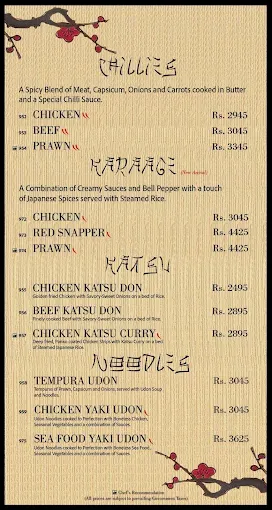 CHILLIES
A Spicy Blend of Meat, Capsicum, Onions and Carrots cooked in Butter
and a Special Chilli Sauce.
952 CHICKEN Rs. 2945
953 BEEF Rs. 3045
954 PRAWN Rs. 3345
KARAAGE
A Combination of Creamy Sauces and Bell Pepper with a touch
of Japanese Spices served with Steamed Rice.
972 CHICKEN Rs. 3045
973 RED SNAPPER Rs. 4425
974 PRAWN Rs. 4425
KATSU
955 CHICKEN KATSU DON Rs. 2495
Golden fried Chicken with Savory-Sweet Onions on a bed of Rice.
956 BEEF KATSU DON Rs. 2895
Finely cooked Beef with Savory-Sweet Onions on a bed of Rice.
957 CHICKEN KATSU CURRY Rs. 2895
Deep fried, Panko coated Chicken Strips with Katsu Curry on a bed
of Steamed Japanese Rice.
NOODLES
958 TEMPURA UDON Rs. 3045
Tempuras of Prawn, Capsicum and Onions, served with Udon Soup
and Noodles.
959 CHICKEN YAKI UDON Rs. 3045
Udon Noodles cooked to Perfection with Boneless Chicken,
Seasonal Vegetables and a combination of Sauces.
975 SEA FOOD YAKI UDON Rs. 3625
Udon Noodles cooked to Perfection with Boneless Sea Food,
Seasonal Vegetables and a combination of Sauces.
Chef's Recommendation
(All prices are subject to prevailing Government Taxes)